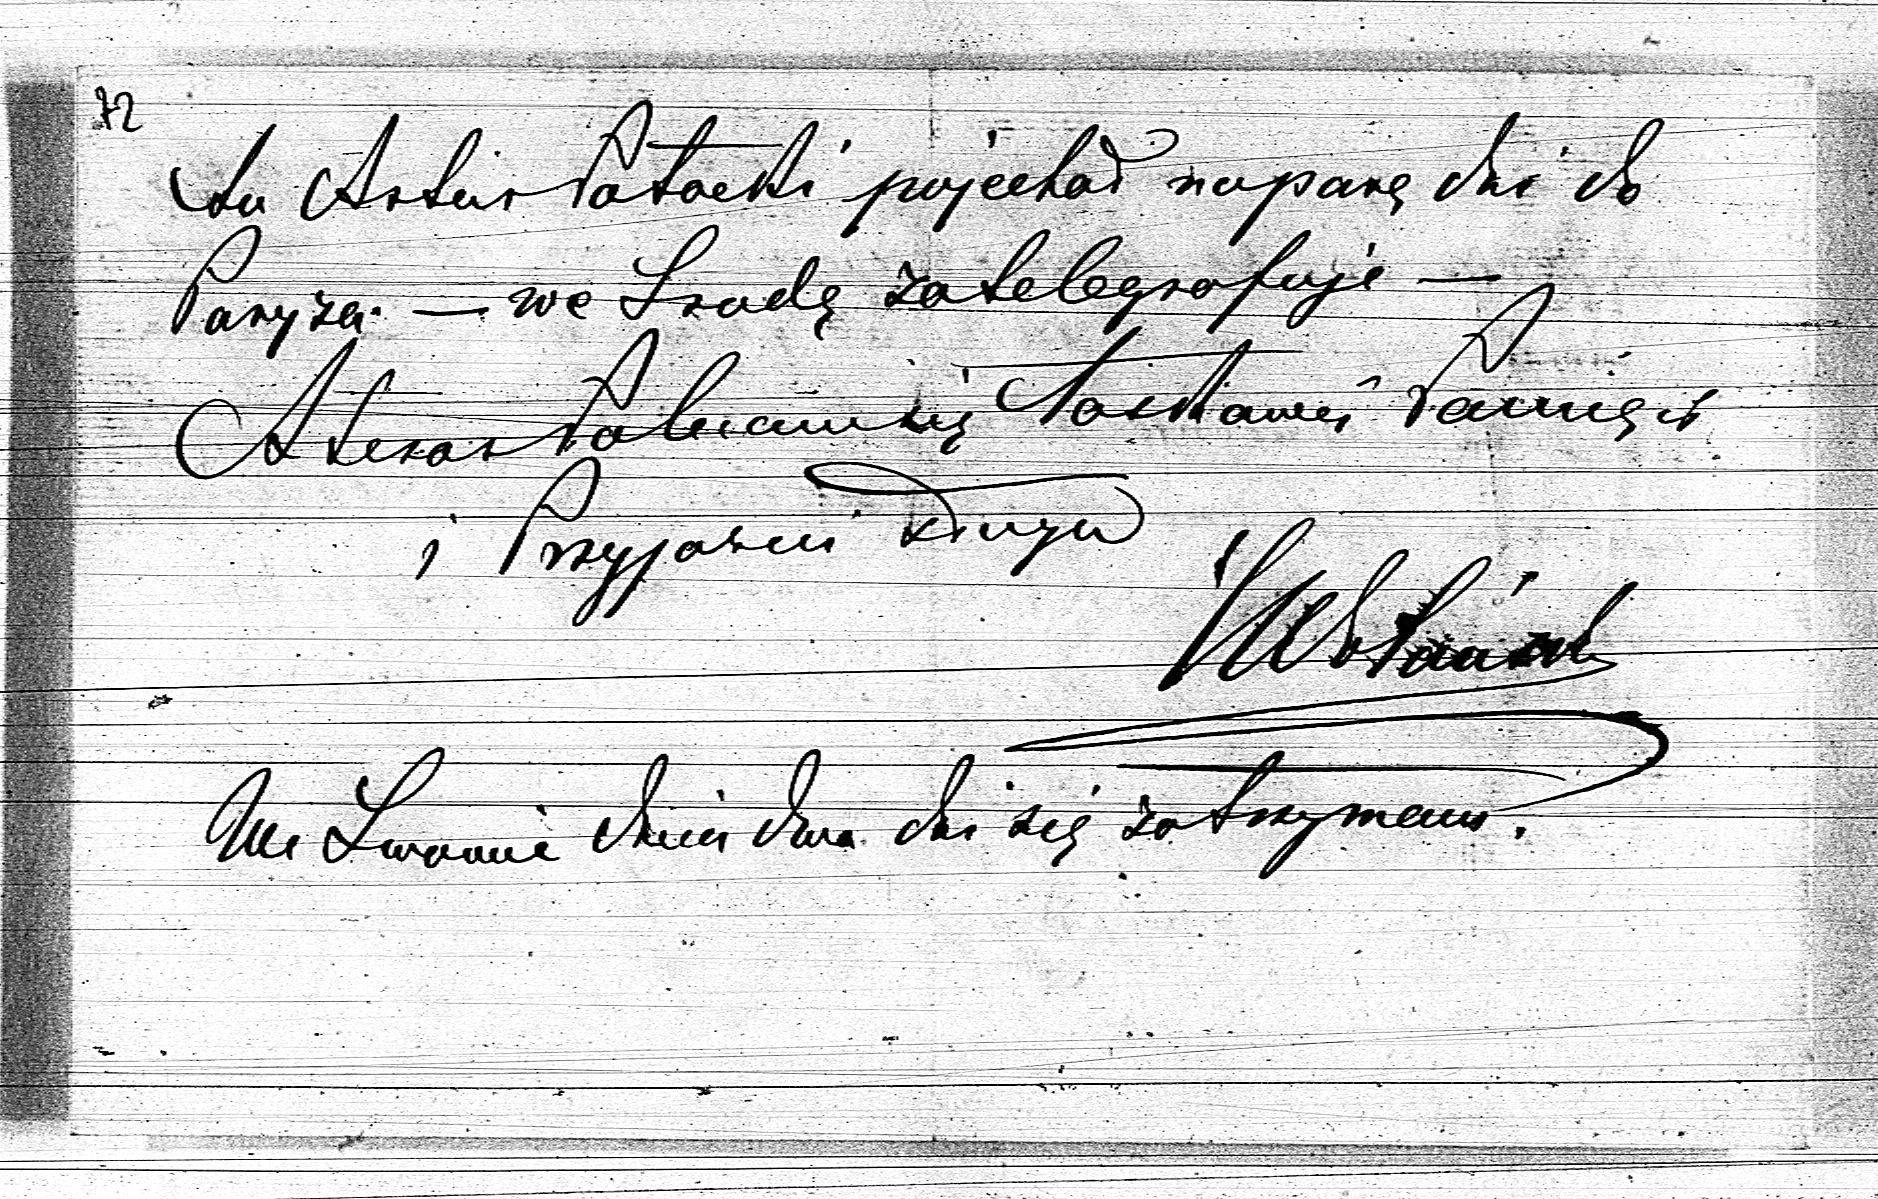 72
tu Artur Potocki pojechał na parę dni do
Paryża. — we Środę zatelegrafuję —
Teraz Polecam się Łaskawej Pamięci
i Przyjaźni
We Lwowie dwa dni się zatrzymam.